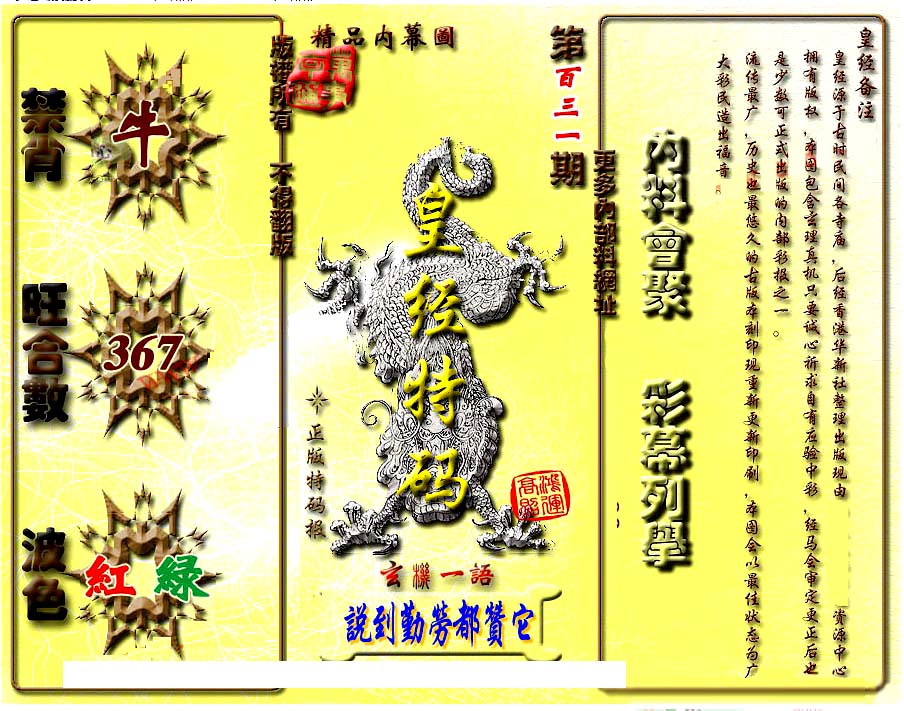 精品内幕圖
版權所有 不得翻版
第百三一期
更多內部料網址
禁肖
牛
旺合數
367
波色
紅 綠
皇经特码
正版特码报
鴻運高照
玄機一語
説到勤勞都贊它
内料會聚
彩幕列舉
皇经备注
皇经源于古时民间各寺庙,后经香港华新社整理出版现由 资源中心
拥有版权,本图包含玄理真机只要诚心祈求自有应验中彩,经马会审定更正后也
是少数可正式出版的内部彩报之一。
流传最广,历史也最悠久的古版本刻印现重新更新印刷,本图会以最佳状态为广
大彩民造出福音